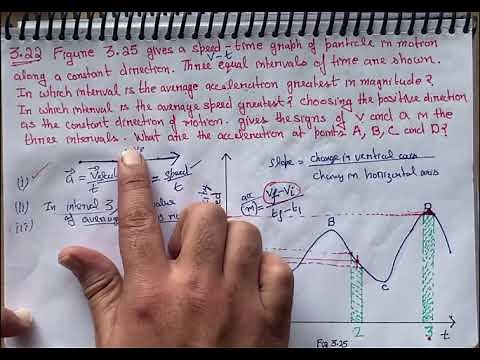 3.22 Figure 3.25 gives a speed-time graph of particle in motion
v-t
along a constant direction. Three equal intervals of time are shown.
In which interval is the average acceleration greatest in magnitude?
In which interval is the average speed greatest? choosing the positive direction
as the constant direction of motion. gives the signs of v and a in the
three intervals. What are the acceleration at points A, B, C and D?
(i)
a = = speed
t t
Slope = change in vertical axis
chang in horizontal axis
(m) = vf - vi
tf - ti
(ii) In interval 3,
(iii) of average
B
C
D
2
3
t
Fig 3.25